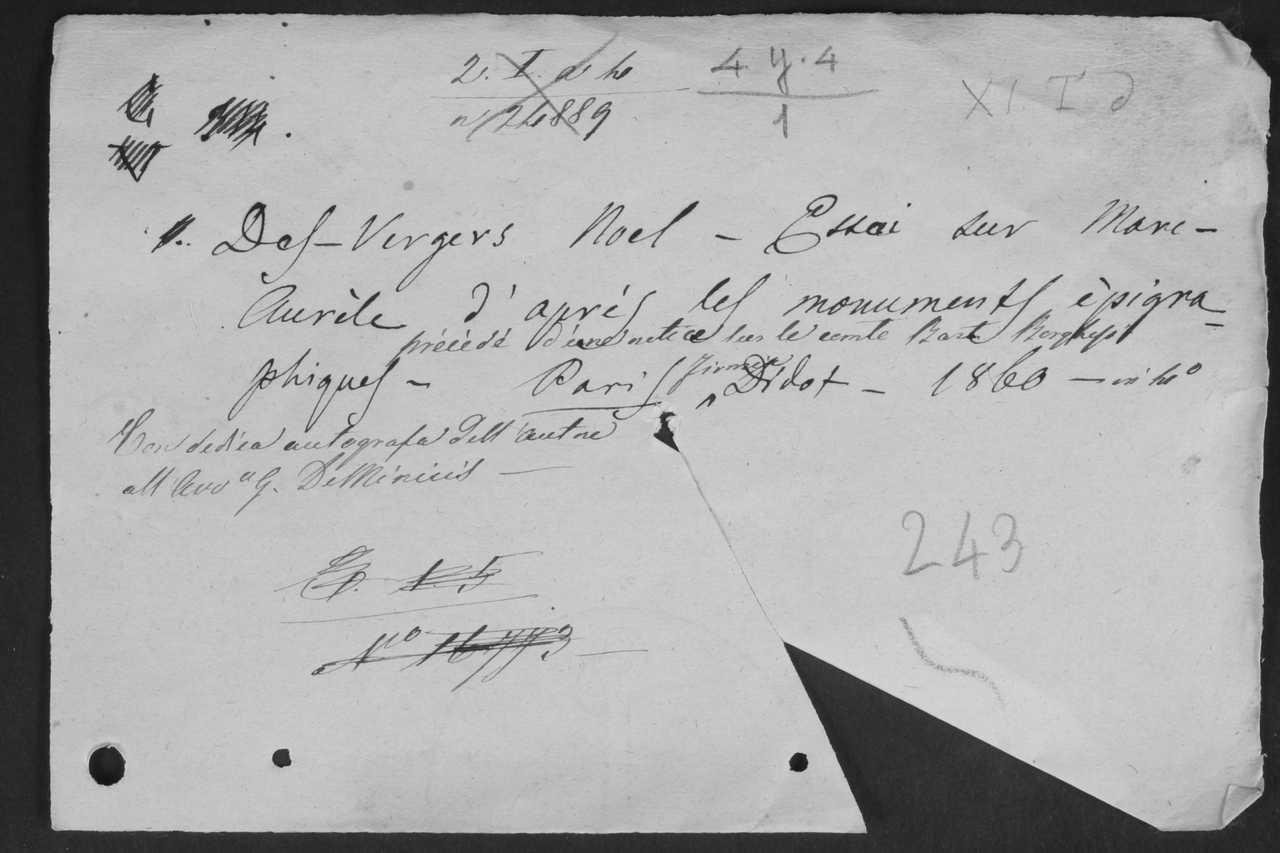 4. y. 4
n 24889
1
XI. I d
1. Des-Vergers Noel - Essai sur Marc-
Aurèle d'après les monuments èpigra-
précédé d'une notice sur le comte Bart. Borghesi
phiques - Paris Firmin Didot - 1860 - in 4º
Con dedica autografa dell'autore
all'Avv. G. De Minicis
243
Nº 16773